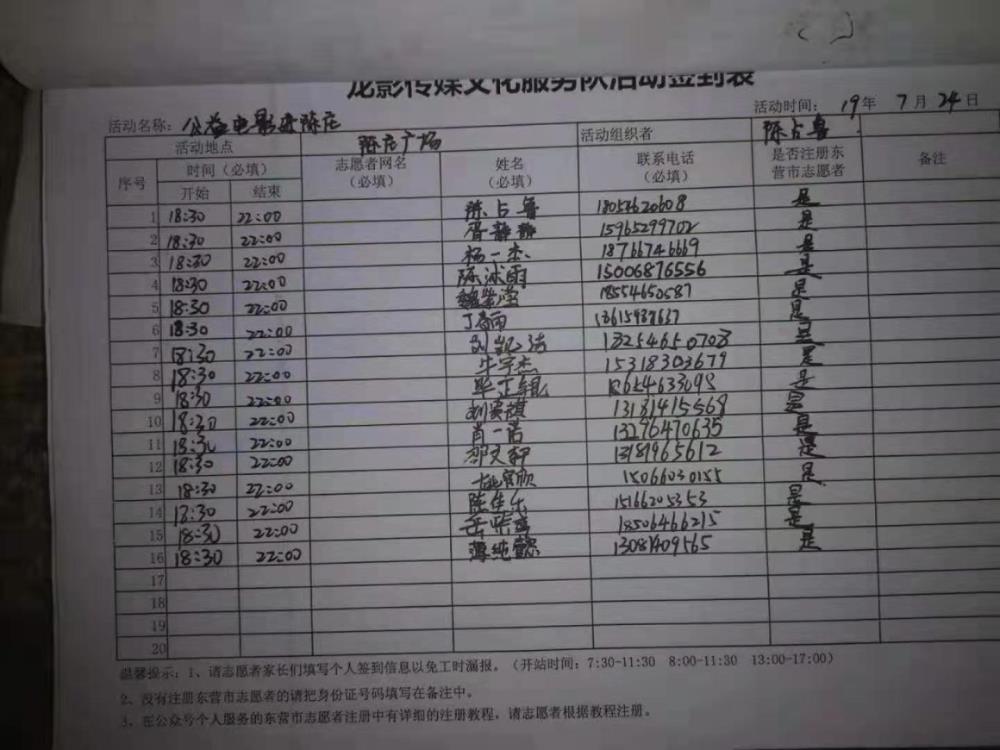 龙影传媒文化服务队活动签到表
活动名称：公益电影进陈庄 活动时间：19年 7月 24日
活动地点 陈庄广场 活动组织者 陈占鲁
序号 时间（必填） 志愿者网名（必填） 姓名（必填） 联系电话（必填） 是否注册东营市志愿者 备注
开始 结束
1 18:30 22:00 陈占鲁 18054620608 是
2 18:30 22:00 胥静静 15965299702 是
3 18:30 22:00 杨一杰 18766746669 是
4 18:30 22:00 陈沭雨 15006876556 是
5 18:30 22:00 18554650587 是
6 18:30 22:00 丁春雨 是
7 18:30 22:00 刘凯洁 13254650708 是
8 18:30 22:00 牛宇杰 15318303679 是
9 18:30 22:00 毕正锟 是
10 18:30 22:00 13181415568 是
11 18:30 22:00 肖一诺 13296470635 是
12 18:30 22:00 13181965612 是
13 18:30 22:00 15066030155 是
14 18:30 22:00 陈佳乐 15166205353 是
15 18:30 22:00 18506466215 是
16 18:30 22:00 薄纯懿 13081409565 是
17
18
19
20
温馨提示：1、请志愿者家长们填写个人签到信息以免工时漏报。（开站时间：7:30-11:30 8:00-11:30 13:00-17:00）
2、没有注册东营市志愿者的请把身份证号码填写在备注中。
3、在公众号个人服务的东营市志愿者注册中有详细的注册教程，请志愿者根据教程注册。